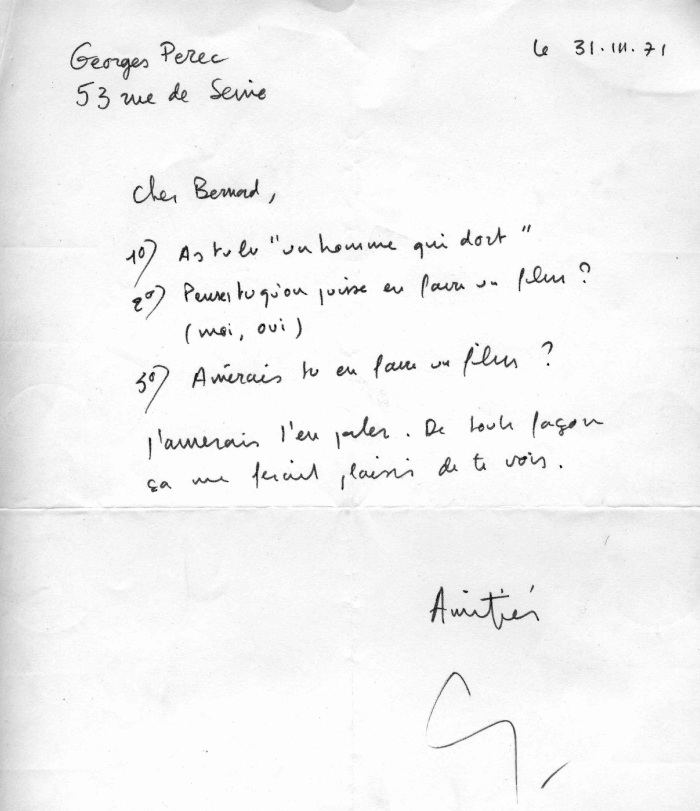 Georges Perec
le 31.III.71
53 rue de Seine
Cher Bernard,
1°) As tu lu "un homme qui dort"
2°) Penses tu qu'on puisse en faire un film ?
(moi, oui)
3°) Aimerais tu en faire un film ?
J'aimerais t'en parler. De toute façon
ça me ferait plaisir de te voir.
Amitiés
G.